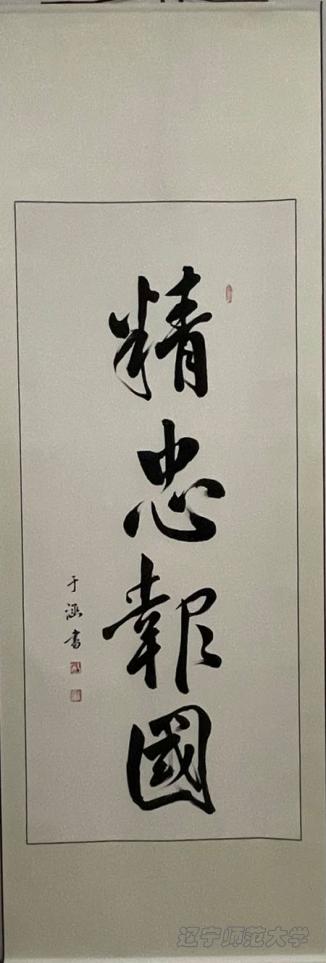 精忠報國
于涵書
辽宁师范大学